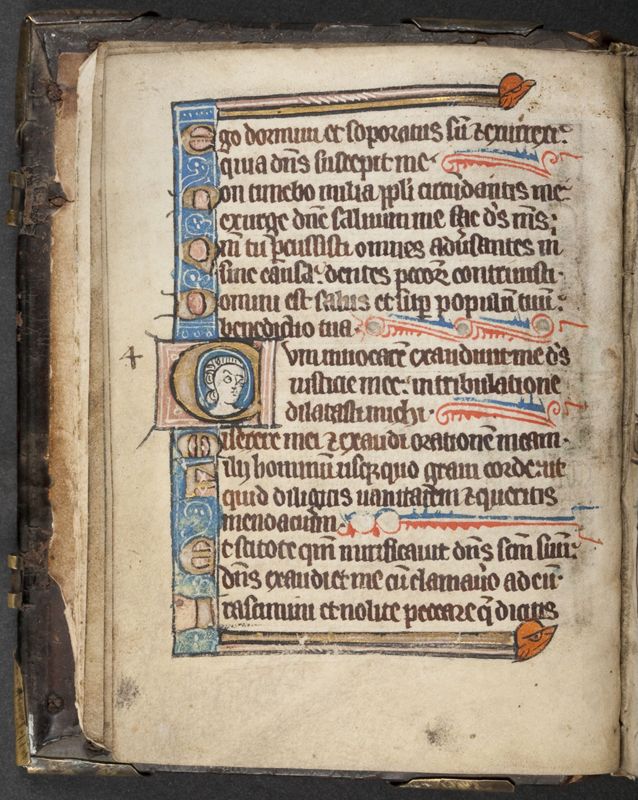 Ego dormiui et soporatus sū ⁊ exurrexi:
quia dn̄s suscepit me.
Non timebo milia ppl̄i circūdantis me
exurge dn̄e saluum me fac d's m̄s;
Qm̄ tu percussisti omnes adūsantes m̄
sine causa: dentes peccoꝝ contriuisti.
Domini est salus et sup̄ populum tuū:
benedictio tua.
4
Cum inuocarē exaudiuit me d's
iusticie mee: in tribulatione
dilatasti michi.
Miserere mei ⁊ exaudi orationē meam.
Filij hominū usq̄quo graui corde: ut
quid diligitis uanitatem ⁊ queritis
mendacium.
Et scitote qm̄ mirificauit dn̄s scm̄ suū:
dn̄s exaudiet me cū clamauero ad eū.
Irascimini et nolite peccare q̄ dicitis